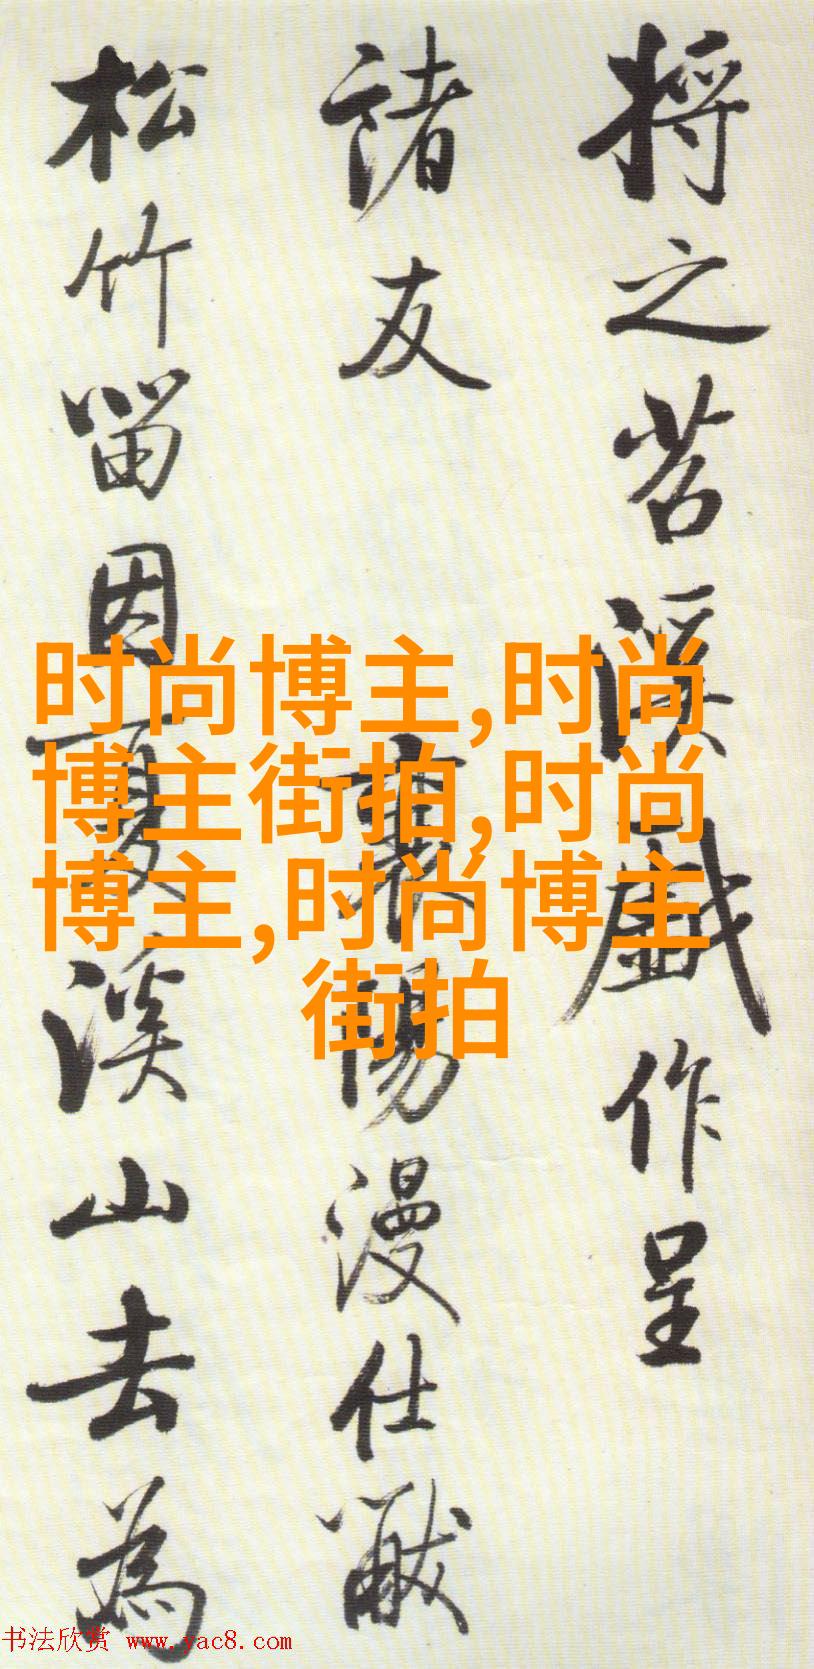 将之苕溪戱作呈
诸友
襄陽漫仕黻
松竹留因夏溪山去為
时尚博主,时尚
博主街拍,时尚
博主,时尚博主
街拍
书法欣赏 www.yac8.com